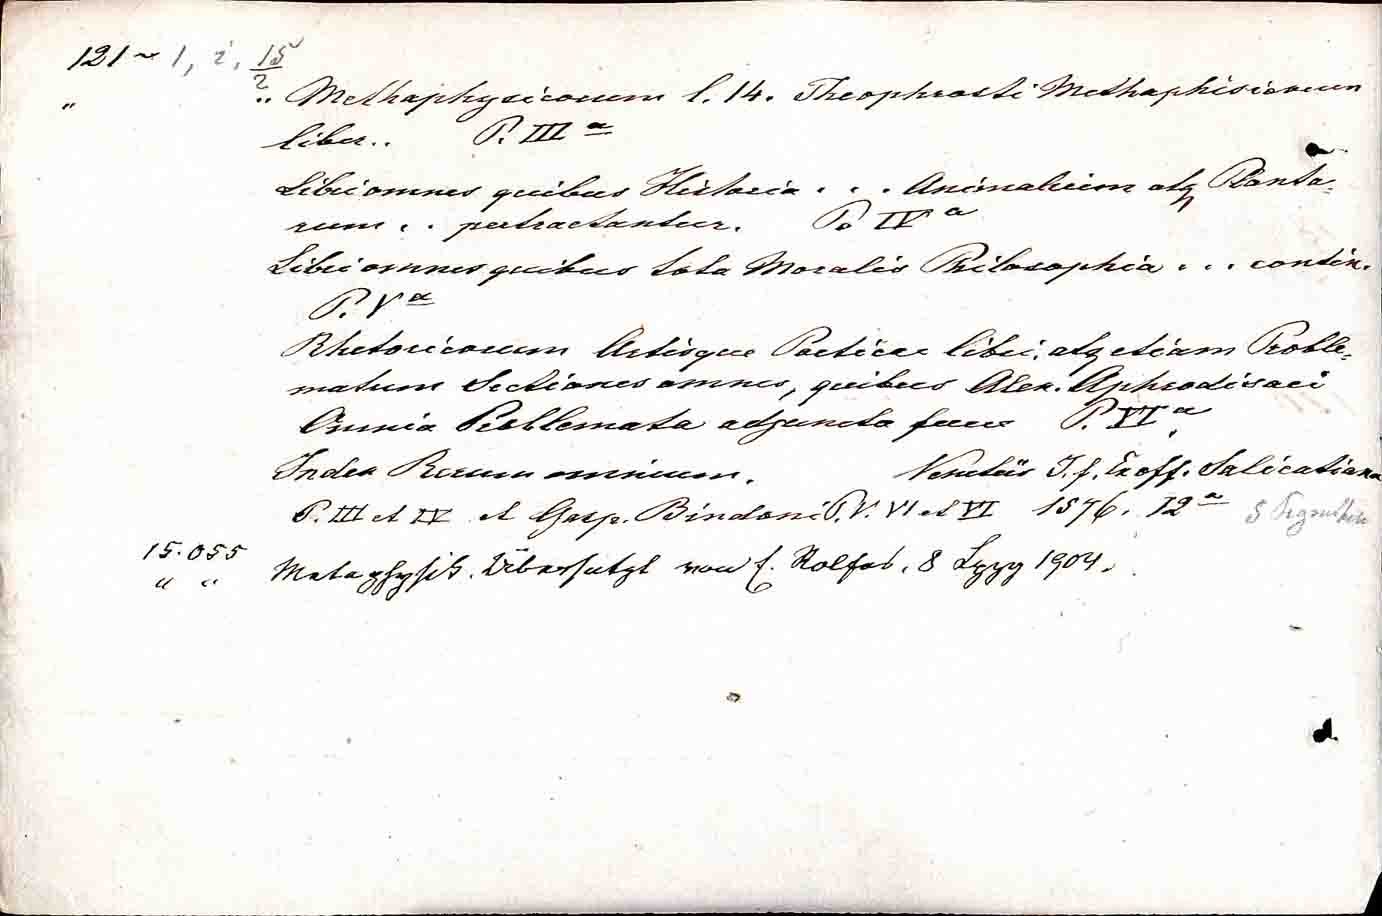 121 ~ 1, 2, 15/2
" .. Methaphysicorum l. 14. Theophrasti Methaphisicorum
liber.. P. III a
Libri omnes quibus Historia . . . Animalium atq Planta-
rum . . pertractantur. P. IV a
Libri omnes quibus tota Moralis Philosophia . . . contin.
P. V a
Rhetoricorum Artisque Poeticae libri, atq etiam Proble-
matum Sectiones omnes, quibus Alex. Aphrodisaei
Omnia Problemata adjuncta sunt P. VI a
Index Rerum omnium. Venetiis I. f. Ex off. Salicatiana
P. III et IV et Gasp. Bindoni P. V. VI et VI 1576. 12 a
15.055
" " Metaphysik. Übersetzt von E. Rolfes. 8 Lpzg 1904.